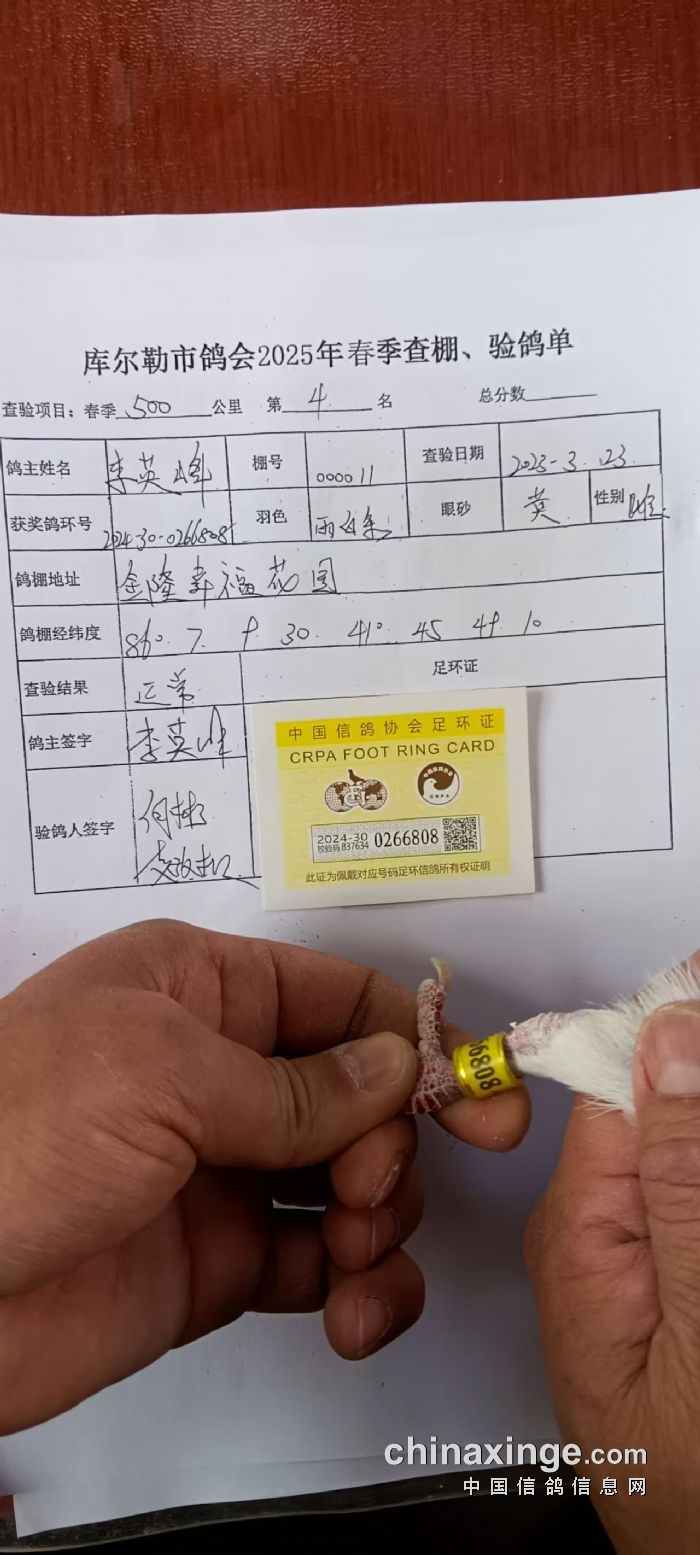 库尔勒市鸽会2025年春季查棚、验鸽单
查验项目：春季 500 公里 第 4 名 总分数
鸽主姓名 李英峰 棚号 000011 查验日期 2025-3.23
获奖鸽环号 2024-30-0266808 羽色 雨白条 眼砂 黄 性别 雌
鸽棚地址 金隆幸福花园
鸽棚经纬度 86° 7. 9 30. 41° 45 49 10
查验结果 正常 足环证
鸽主签字 李英峰
验鸽人签字
中国信鸽协会足环证
CRPA FOOT RING CARD
CRPA
2024-30 0266808
校验码 837634
此证为佩戴对应号码足环信鸽所有权证明
66808
chinaxinge.com
中国信鸽信息网